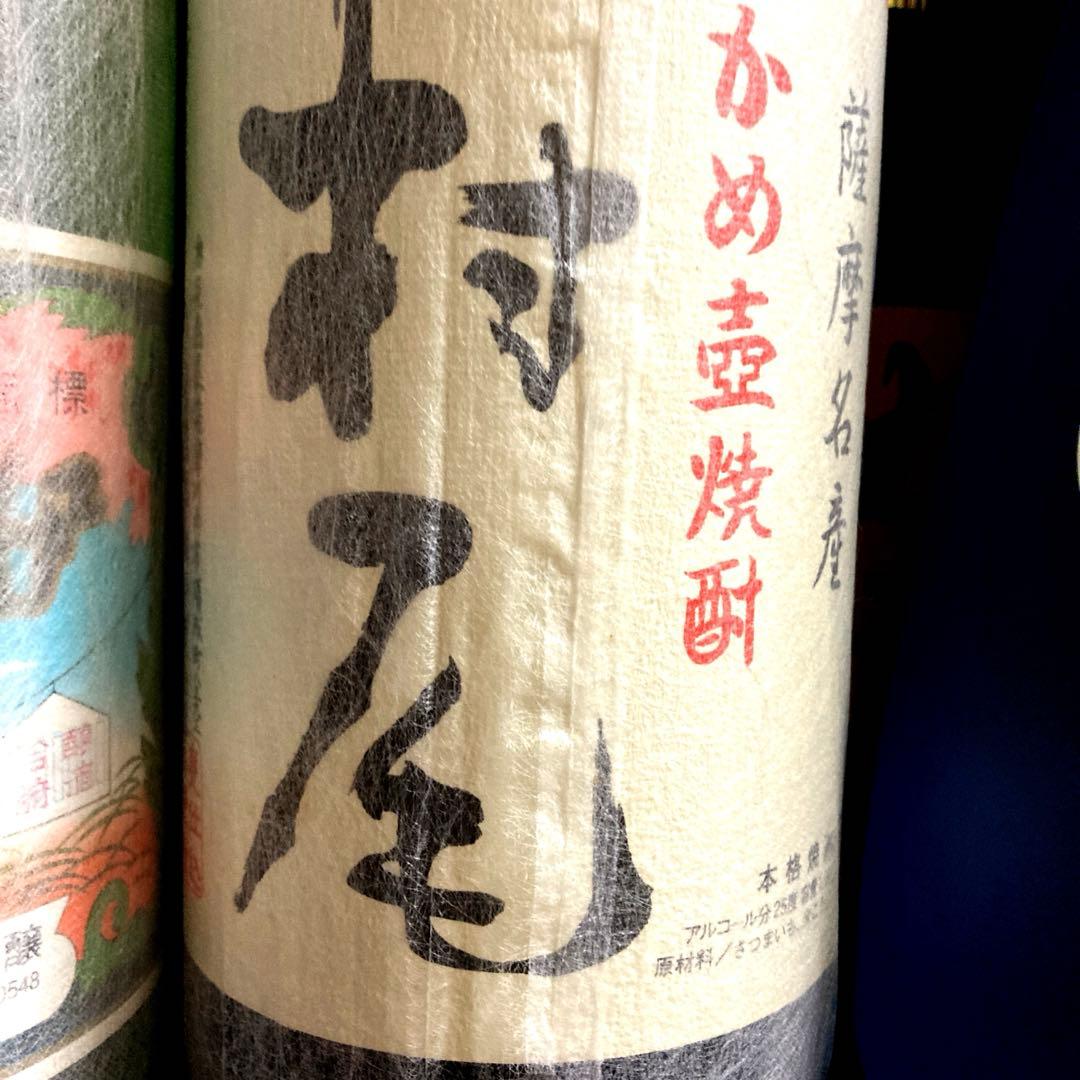 薩摩名産
かめ壺焼酎
村尾
本格焼酎
アルコール分25度
原材料/さつまいも、米こ
標
醸
3548